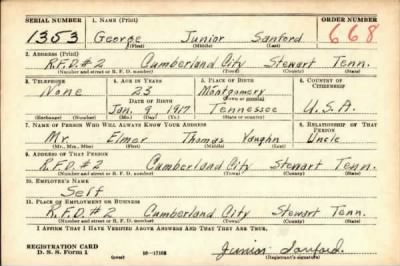 SERIAL NUMBER 1. NAME (Print) ORDER NUMBER
1353 George Junior Sanford 668
(First) (Middle) (Last)
2. ADDRESS (Print)
R.F.D.#2 Cumberland City Stewart Tenn.
(Number and street or R. F. D. number) (Town) (County) (State)
3. TELEPHONE 4. AGE IN YEARS 5. PLACE OF BIRTH 6. COUNTRY OF CITIZENSHIP
None 23 Montgomery
DATE OF BIRTH (Town or county)
Jan. 9, 1917 Tennessee U.S.A.
(Exchange) (Number) (Mo.) (Day) (Yr.) (State or country)
7. NAME OF PERSON WHO WILL ALWAYS KNOW YOUR ADDRESS 8. RELATIONSHIP OF THAT PERSON
Mr. Elmer Thomas Vaughn Uncle
(Mr., Mrs., Miss) (First) (Middle) (Last)
9. ADDRESS OF THAT PERSON
R.F.D.#2 Cumberland City Stewart Tenn.
(Number and street or R. F. D. number) (Town) (County) (State)
10. EMPLOYER'S NAME
Self
11. PLACE OF EMPLOYMENT OR BUSINESS
R.F.D.#2 Cumberland City Stewart Tenn.
(Number and street or R. F. D. number) (Town) (County) (State)
I AFFIRM THAT I HAVE VERIFIED ABOVE ANSWERS AND THAT THEY ARE TRUE.
REGISTRATION CARD
D. S. S. Form 1 (over) 16-17105 Junior Sanford.
(Registrant's signature)